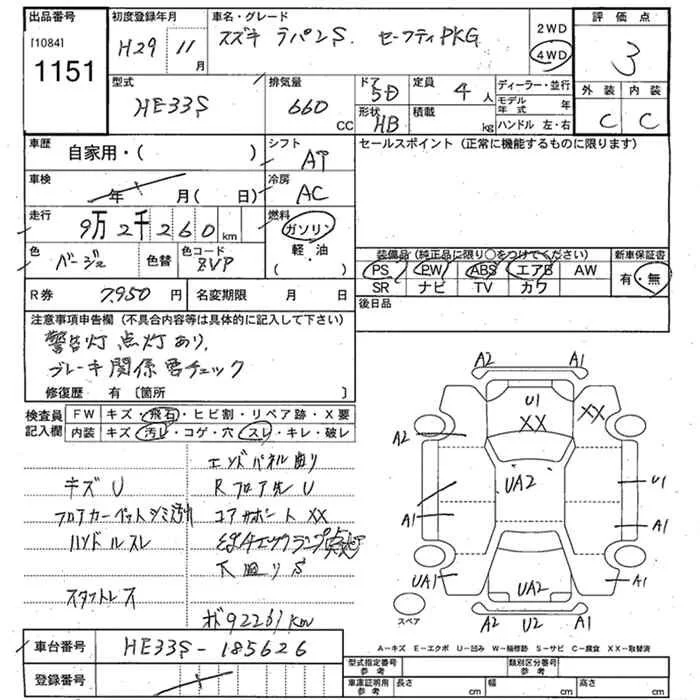 出品番号
[1084]
1151
初度登録年月
H29 11 月
車名・グレード
スズキ ラパンS. セーフティPKG
2WD
4WD
評価点
3
外装 内装
C C
型式
HE33S
排気量
660 CC
ドア 5D
形状 HB
定員 4 人
積載 kg
ディーラー・並行
モデル年式 年
ハンドル 左・右
車歴
自家用・( )
シフト
AT
セールスポイント (正常に機能するものに限ります)
車検
年 月( 日)
冷房
AC
走行
9万2千260 km
燃料
ガソリン
軽・油
( )
色
ベージュ
色替
色コード
ZVP
装備品(純正品に限り○をつけてください)
PS PW ABS エアB AW
SR ナビ TV カワ
新車保証書
有・無
R券 7950 円
名変期限 月 日
後日品
注意事項申告欄(不具合内容等は具体的に記入して下さい)
警告灯点灯あり,
ブレーキ関係要チェック
修復歴 有 〔箇所 〕
検査員記入欄
FW キズ・飛石・ヒビ割・リペア跡・X要
内装 キズ・汚レ・コゲ・穴・スレ・キレ・破レ
エンドパネル曲り
キズU
Rフロア先U
フロアカーペットシミ
コアサポートXX
ハンドルスレ
下廻りS
スタットレス
ボ92261km
A2 A1
U1
XX XX
A2
UA2
U1
A1 A1
UA1 UA2 A1
A2 U2 A1
スペア
A-キズ E-エクボ U-凹み W-補修跡 S-サビ C-腐食 XX-取替済
車台番号 HE33S-185626
登録番号
型式指定番号 参考
類別区分番号 参考
車庫証明用 参考
長さ cm 幅 cm 高さ cm